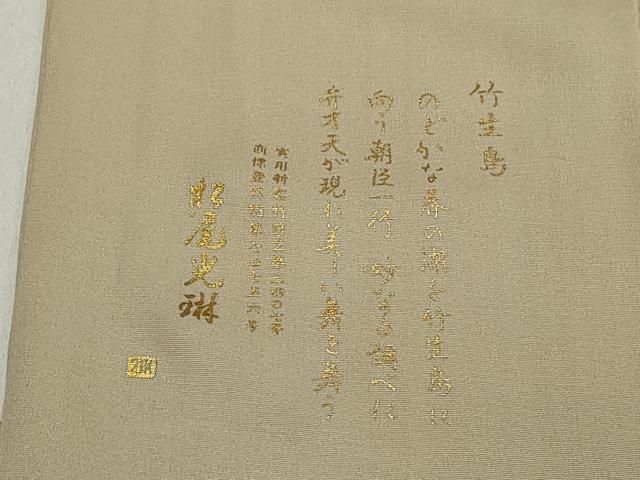 竹生島
のどかな春の湖を竹生島に
向う朝臣一行 妙なる調べに
弁才天が現れ美しい舞を舞う
実用新案特許
商標登録
光琳